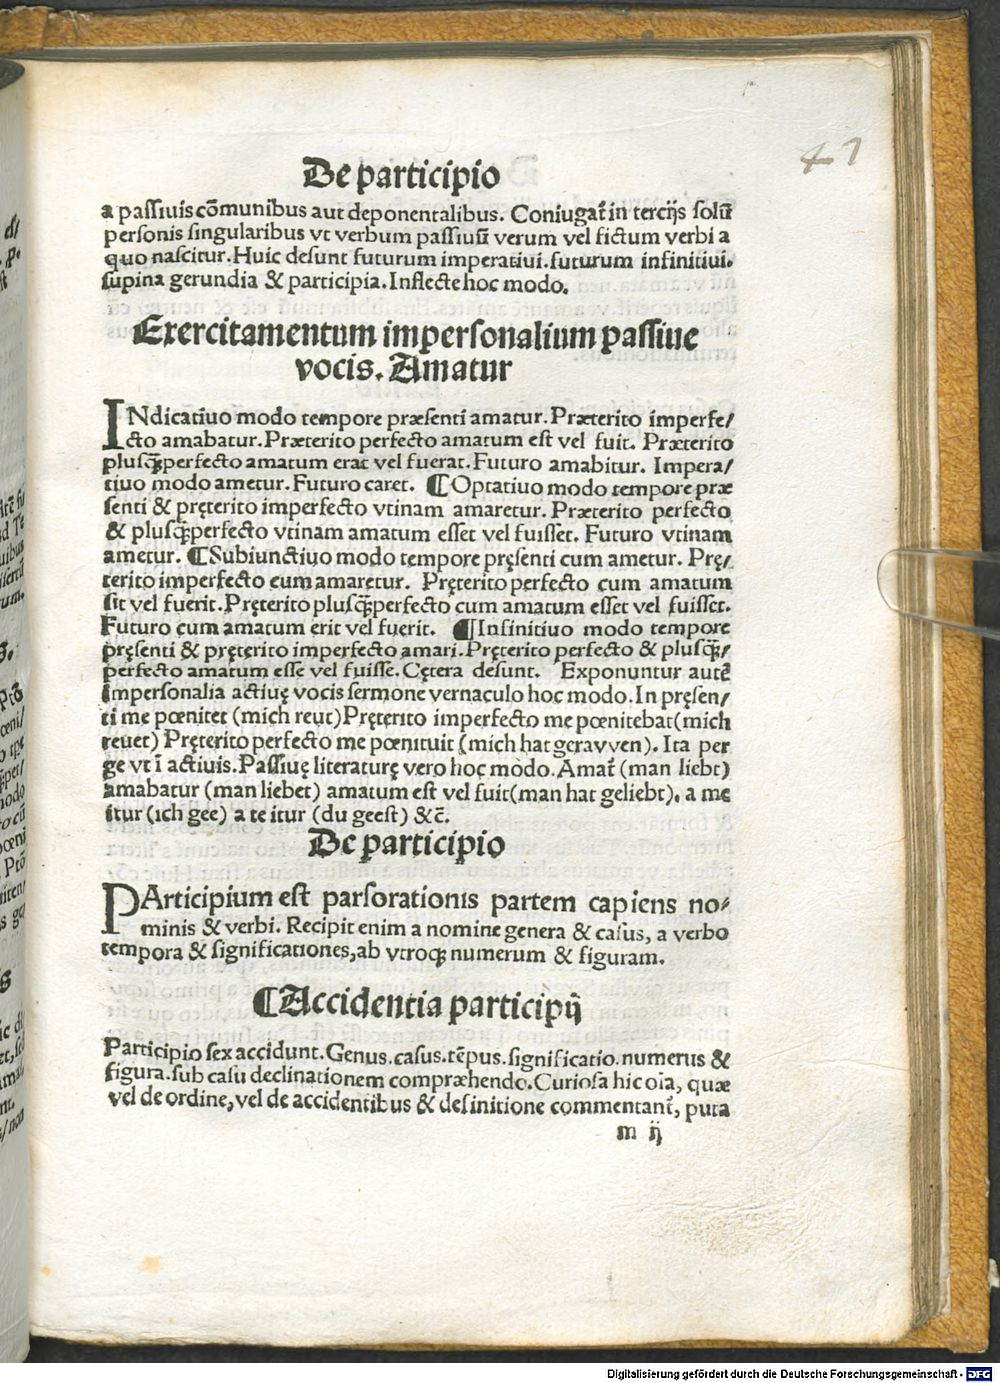 47
De participio
a passiuis cõmunibus aut deponentalibus. Coniugat̃ in tercijs solũ
personis singularibus vt verbum passiuũ verum vel fictum verbi a
quo nascitur. Huic desunt futurum imperatiui. futurum infinitiui.
supina gerundia & participia. Inflecte hoc modo.
Exercitamentum impersonalium passiue
vocis. Amatur
INdicatiuo modo tempore præsenti amatur. Præterito imperfe/
cto amabatur. Præterito perfecto amatum est vel fuit. Præterito
plusq̃perfecto amatum erat vel fuerat. Futuro amabitur. Impera/
tiuo modo ametur. Futuro caret. ¶ Optatiuo modo tempore præ
senti & pręterito imperfecto vtinam amaretur. Præterito perfecto
& plusq̃perfecto vtinam amatum esset vel fuisset. Futuro vtinam
ametur. ¶ Subiunctiuo modo tempore pręsenti cum ametur. Prę/
terito imperfecto cum amaretur. Pręterito perfecto cum amatum
sit vel fuerit. Pręterito plusq̃perfecto cum amatum esset vel fuisset.
Futuro cum amatum erit vel fuerit. ¶ Infinitiuo modo tempore
pręsenti & pręterito imperfecto amari. Pręterito perfecto & plusq̃/
perfecto amatum esse vel fuisse. Cętera desunt. Exponuntur autẽ
impersonalia actiuę vocis sermone vernaculo hoc modo. In pręsen/
ti me pœnitet (mich reut) Pręterito imperfecto me pœnitebat (mich
reuet) Pręterito perfecto me pœnituit (mich hat geravven). Ita per
ge vt ĩ actiuis. Passiuę literaturę vero hoc modo. Amat̃ (man liebt)
amabatur (man liebet) amatum est vel fuit (man hat geliebt). a me
itur (ich gee) a te itur (du geest) &c̃.
De participio
PArticipium est pars orationis partem capiens no/
minis & verbi. Recipit enim a nomine genera & casus, a verbo
tempora & significationes, ab vtroq̃ numerum & figuram.
¶ Accidentia participij
Participio sex accidunt. Genus. casus. tẽpus. significatio. numerus &
figura. sub casu declinationem compræhendo. Curiosa hic oĩa, quæ
vel de ordine, vel de accidentibus & definitione commentant̃, puta
m ij
Digitalisierung gefördert durch die Deutsche Forschungsgemeinschaft - DFG